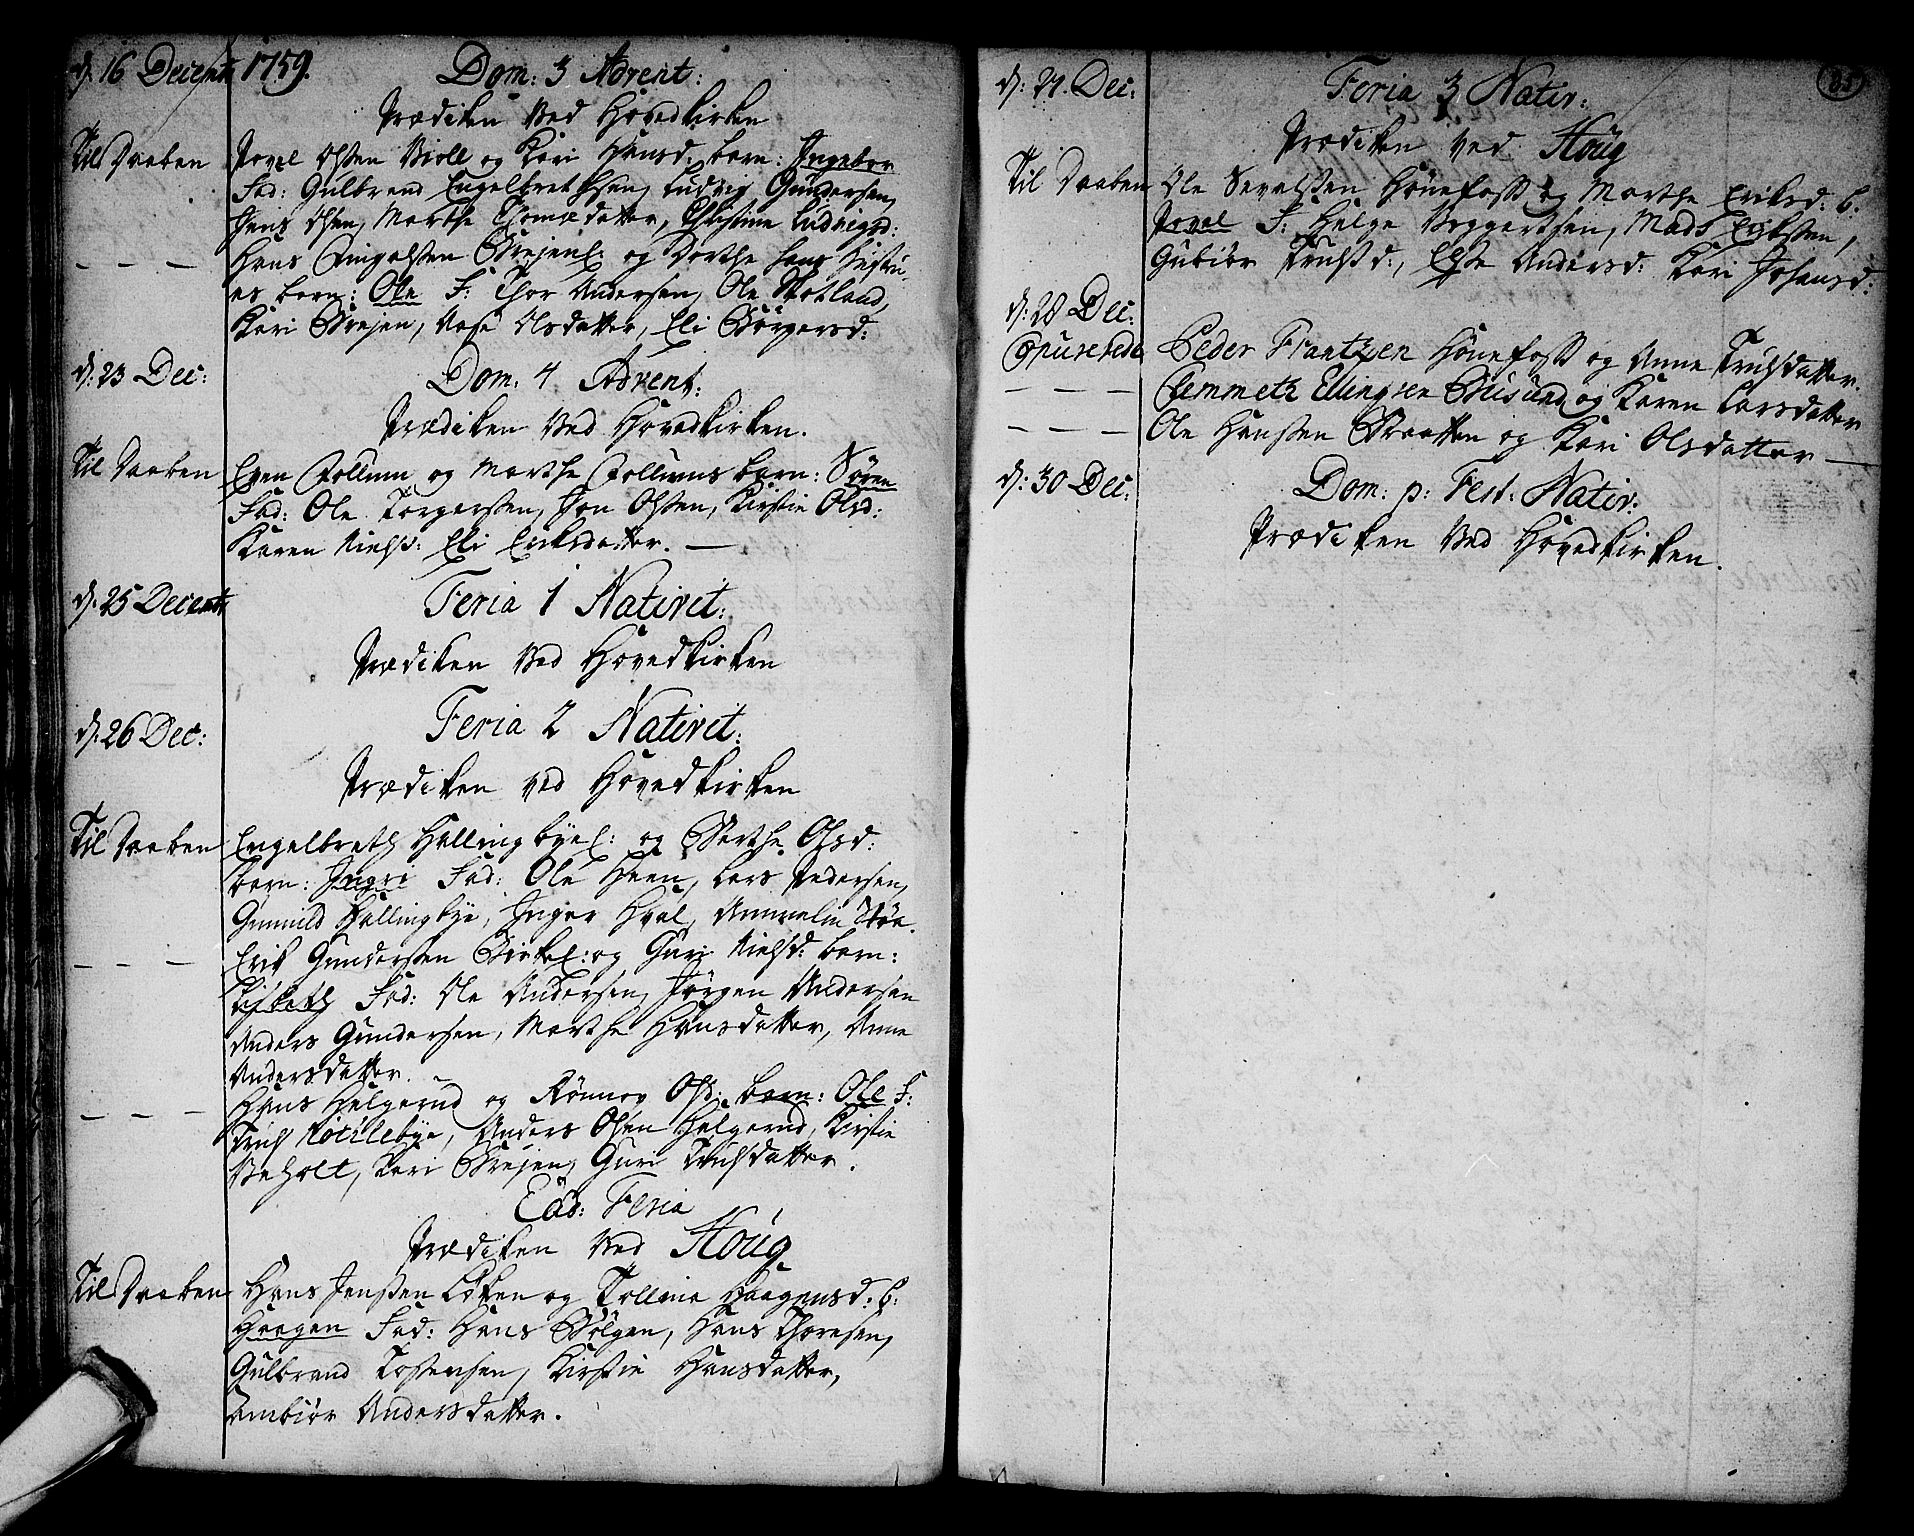 d. 16 Decembr 1759. Dom: 3 Advent:
Prædiken Ved Hovedkirken
Til Daaben Povel Olssen Violl og Kari Hansd. barn: Ingebor
Fad: Gulbrand Engelbrethsen, Ludvig Gundersen,
Hans Olsen, Marthe Thomædatter, Christine Ludvigsd:
— — — Hans Ringolssen Børejenl: og Dorthe Hans Hustru-
es barn: Ole F: Thor Andersen, Ole Skotland,
Kari Børejen, Aase Olsdatter, Eli Børgersd:
d: 23 Dec: Dom. 4 Advent:
Prædiken Ved Hovedkirken.
Til Daaben Even Follum og Marthe Follums barn: Sören
Fad: Ole Torgerssen, Jon Olssen, Kirstie Olsd:
Karen Nielsd: Eli Eriksdatter. —
d: 25 Decembr Feria 1 Nativit:
Prædiken Ved Hovedkirken
d. 26 Dec: Feria 2 Nativit:
Prædiken ved Hovedkirken
Til Daaben Engelbreth Hallingbyel: og Berthe Olsd:
barn: Ingri Fad: Ole Heen, Lars Pedersen,
Gunnild Hallingbye, Inger Hval, Annelin
— — — Erik Gunderssen og Guri Nielsd: barn:
Lisbeth Fad: Ole Andersen, Jörgen Andersen
Anders Gundersen, Marthe Hansdatter, Anne
Andersdatter. —
— — — Hans Helgerud og Rönnov Olsd: barn: Ole F:
Truls Kochlebye, Anders Olsen Helgerud, Kirstie
Veholt, Kari Børejen, Guri Trulsdatter.
Ead: Feria
Prædiken Ved Houg
Til Daaben Hans Jenssen Löken og Tolline Haagensd: b:
Haagen Fad: Hans Bölgen, Hans Thoresen,
Gulbrand Tostensen, Kirstie Hansdatter,
Embiör Andersdatter.
d: 27. Dec: Feria 3 Nativ: 85
Prædiken ved Houg
Til Daaben Ole Sevalssen Hönefoss og Marthe Eriksd: b:
Povel F: Helge Veggerthsen, Mads Erikssen,
Gubiör Trulsd:, Else Andersd: Kari Johansd:
d: 28 Dec:
Copulerede Peder Frantzen Hönefoss og Anne Trulsdatter.
— — — Clemmetz Ellingsen Busund og Karen Larsdatter
— — — Ole Hanssen Braatten og Kari Olsdatter —
d: 30 Dec: Dom: p: Fest: Nativ:
Prædiken Ved Hovedkirken.